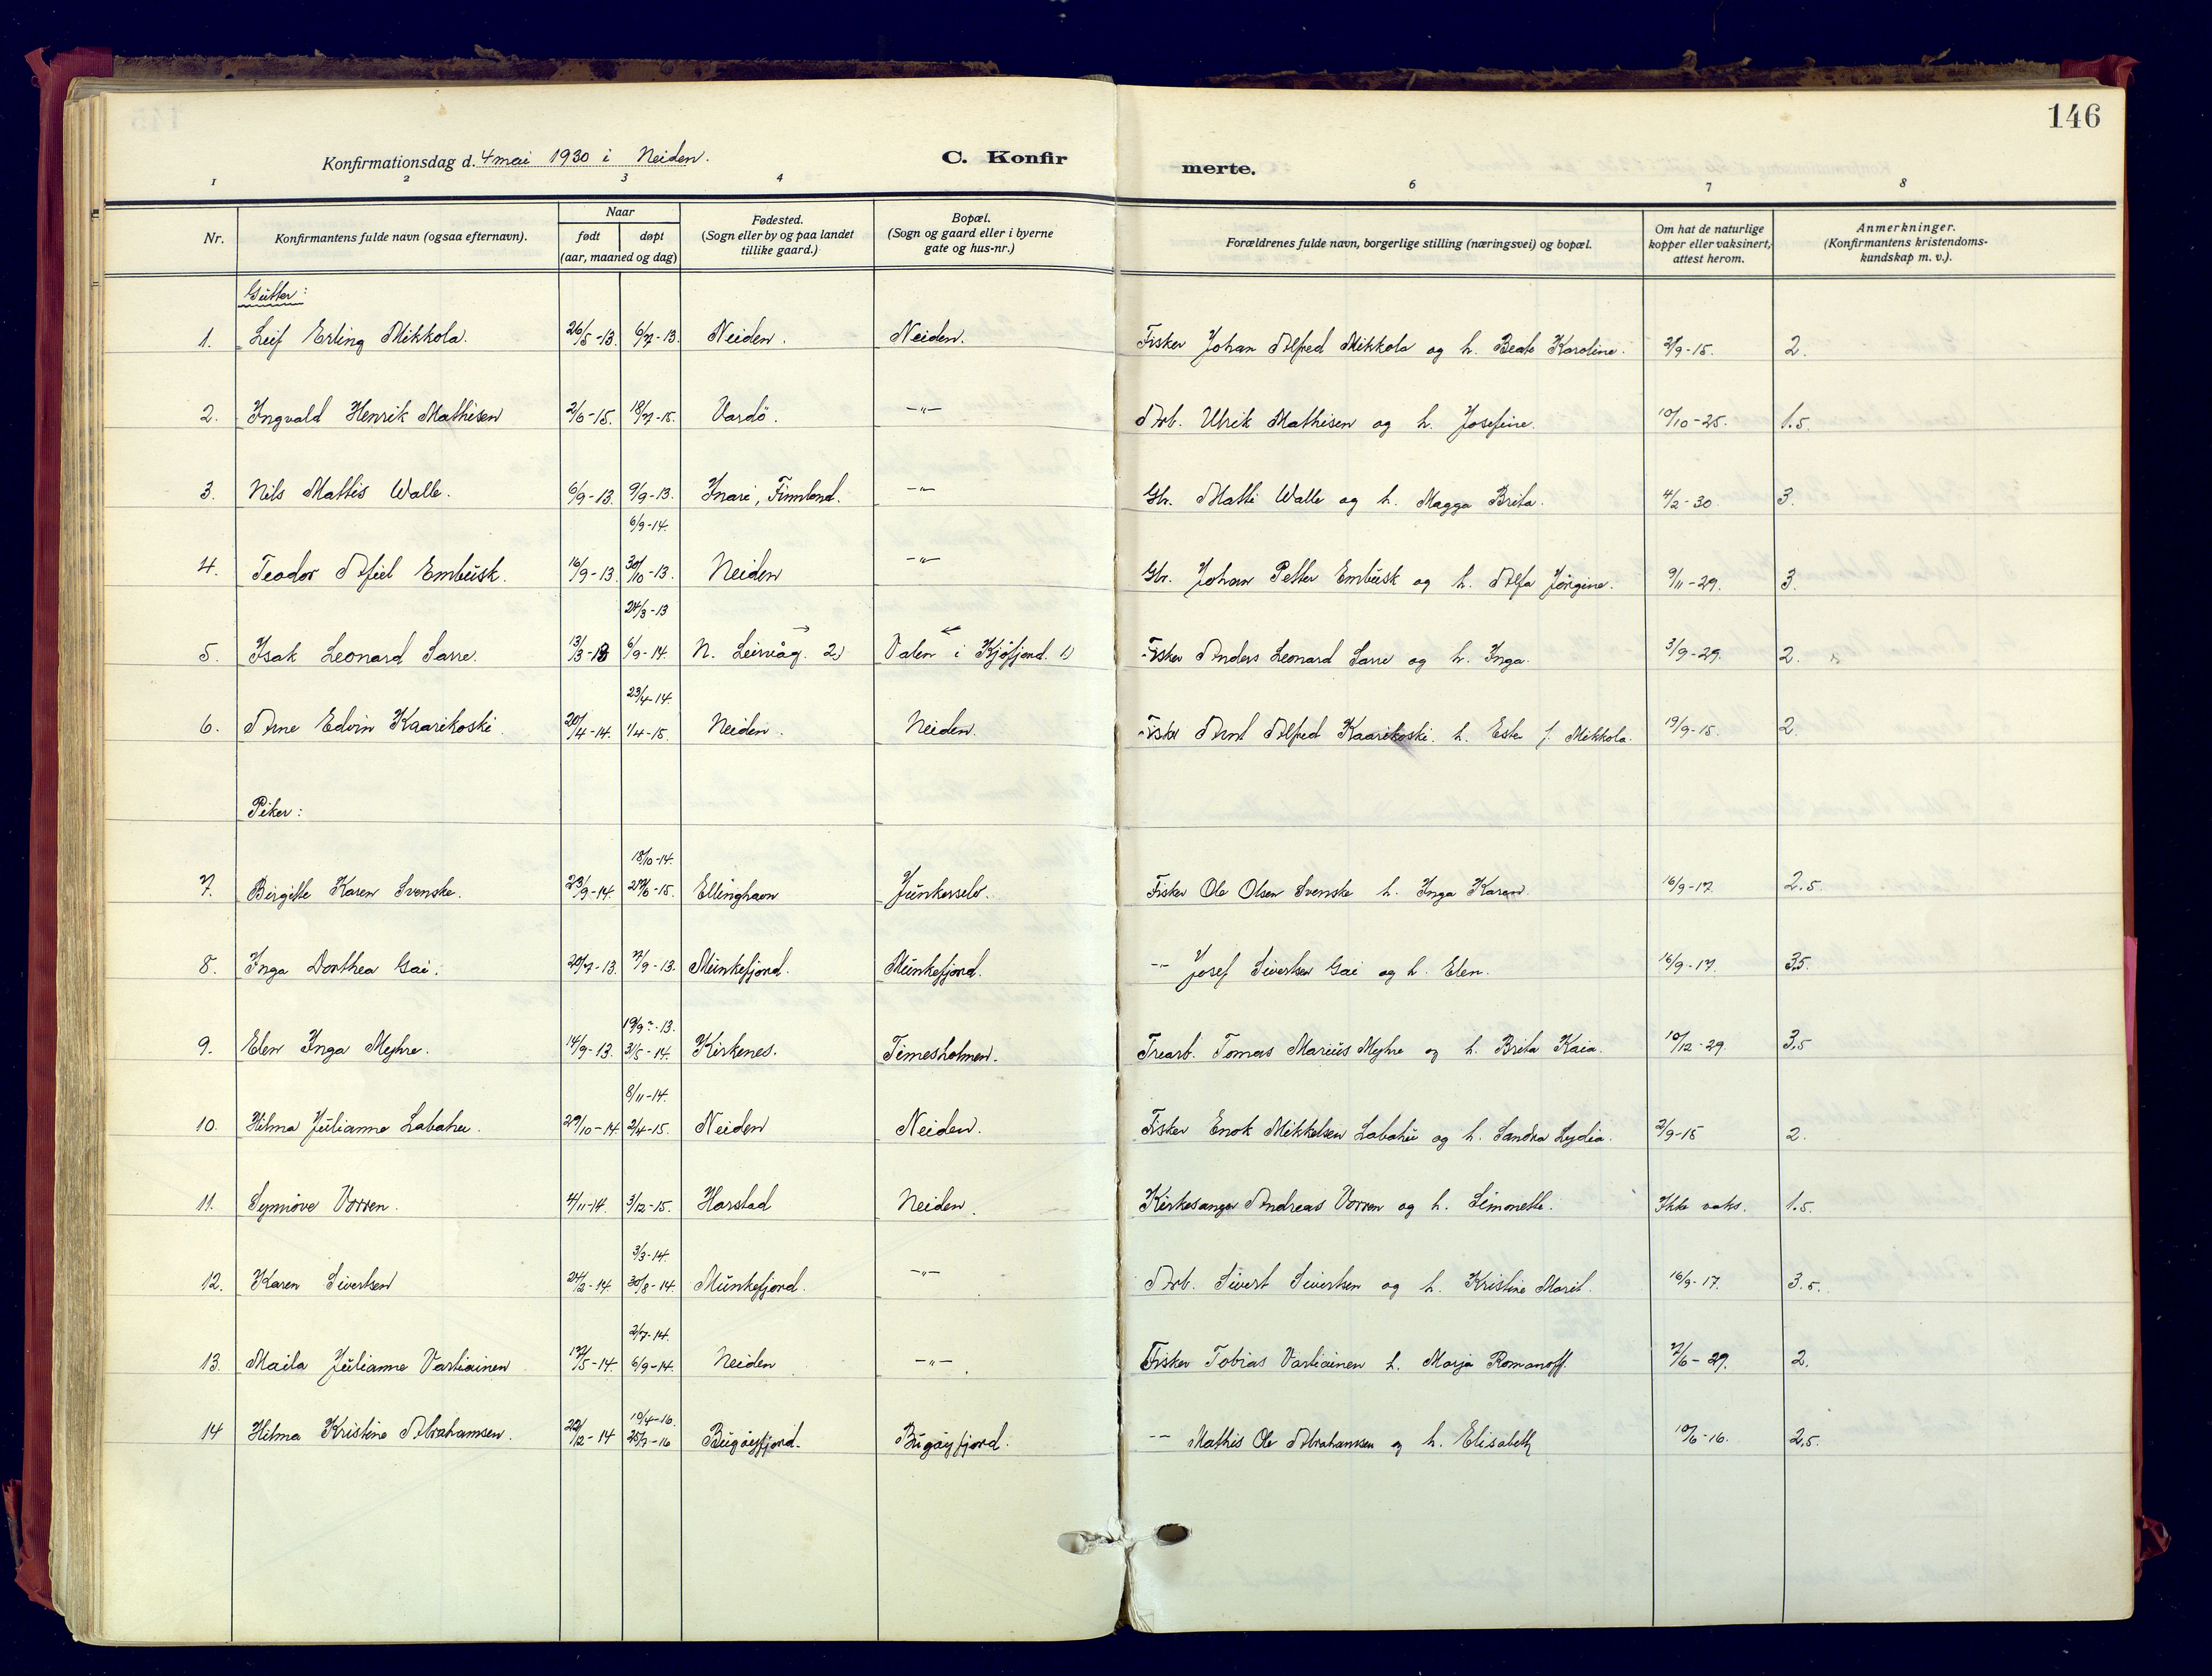 146
Konfirmationsdag d. 4 mai 1930 i Neiden.
C. Konfirmerte.
1 2 3 4 6 7 8
Nr.
Konfirmantens fulde navn (ogsaa efternavn).
Naar
født døpt
(aar, maaned og dag)
Fødested.
(Sogn eller by og paa landet
tillike gaard.)
Bopæl.
(Sogn og gaard eller i byerne
gate og hus-nr.)
Forældrenes fulde navn, borgerlige stilling (næringsvei) og bopæl.
Om hat de naturlige
kopper eller vaksinert,
attest herom.
Anmerkninger.
(Konfirmantens kristendoms-
kundskap m. v.).
Gutter:
1. Leif Erling Mikkola. 26/5-13. 6/7-13. Neiden. Neiden. Fisker Johan Alfred Mikkola og h. Beate Karoline. 2/9-15. 2.
2. Ingvald Henrik Mathisen 2/6-15. 18/7-15. Vardö. -"- Arb. Ulrik Mathisen og h. Josefine. 10/10-25. 1.5.
3. Nils Mattis Walle. 6/9-13. 9/9-13. Inari, Finnland. -"- Gbr. Matti Walle og h. Magga Brita. 4/2-30. 3.
6/9-14.
4. Teodor Afiel Embusk. 16/9-13. 30/10-13. Neiden -"- Gbr. Johan Petter Embusk og h. Alfa Jörgine. 9/11-29. 3.
24/3-13
5. Isak Leonard Sarre. 13/3-13 6/9-14. N. Leirvåg. 2) Valen i Kjöfjord. 1) Fisker Anders Leonard Sarre og h. Inga. 3/9-29. 2.
23/4-14.
6. Arne Edvin Kaarikoski. 20/4-14. 1/4-15. Neiden. Neiden. Fisker Arnt Alfred Kaarikoski. h. Ester f. Mikkola. 19/9-15. 2.
Piker:
18/10-14.
7. Birgitte Karen Svenske. 23/9-14. 27/6-15. Ellinghavn Junkerselv. Fisker Ole Olsen Svenske h. Inga Karen. 16/9-17. 2.5.
8. Inga Dorthea Gai. 20/7-13. 7/9-13. Munkefjord. Munkefjord. -"- Josef Sivertsen Gai og h. Elen. 16/9-17. 3.5.
19/9-13.
9. Elen Inga Myhre. 14/9-13. 31/5-14. Kirkenes. Timesholmen. Trearb. Tomas Marius Myhre og h. Brita Kaia. 10/12-29. 3.5
8/11-14.
10. Hilma Julianne Labahu. 29/10-14 2/4-15. Neiden Neiden. Fisker Enok Mikkelsen Labahu og h. Sandra Lydia. 2/9-15 2.
11. Synnöve Vorren. 4/11-14. 3/12-15. Harstad Neiden. Kirkesanger Andreas Vorren og h. Simonette. Ikke vaks. 1.5.
3/3-14.
12. Karen Sivertsen 24/2-14. 30/8-14. Munkefjord. -"- Arb. Sivert Sivertsen og h. Kristine Marit. 16/9-17. 3.5.
2/7-14.
13. Maila Julianne Vartiainen 17/5-14 6/9-14. Neiden -"- Fisker Tobias Vartiainen h. Marja Romanoff. 7/6-29. 2.
10/4-16.
14 Hilma Kristine Abrahamsen. 22/12-14 25/7-16 Bugøyfjord. Bugøyfjord. -"- Mathis Ole Abrahamsen og h. Elisabeth 10/6-16. 2.5.